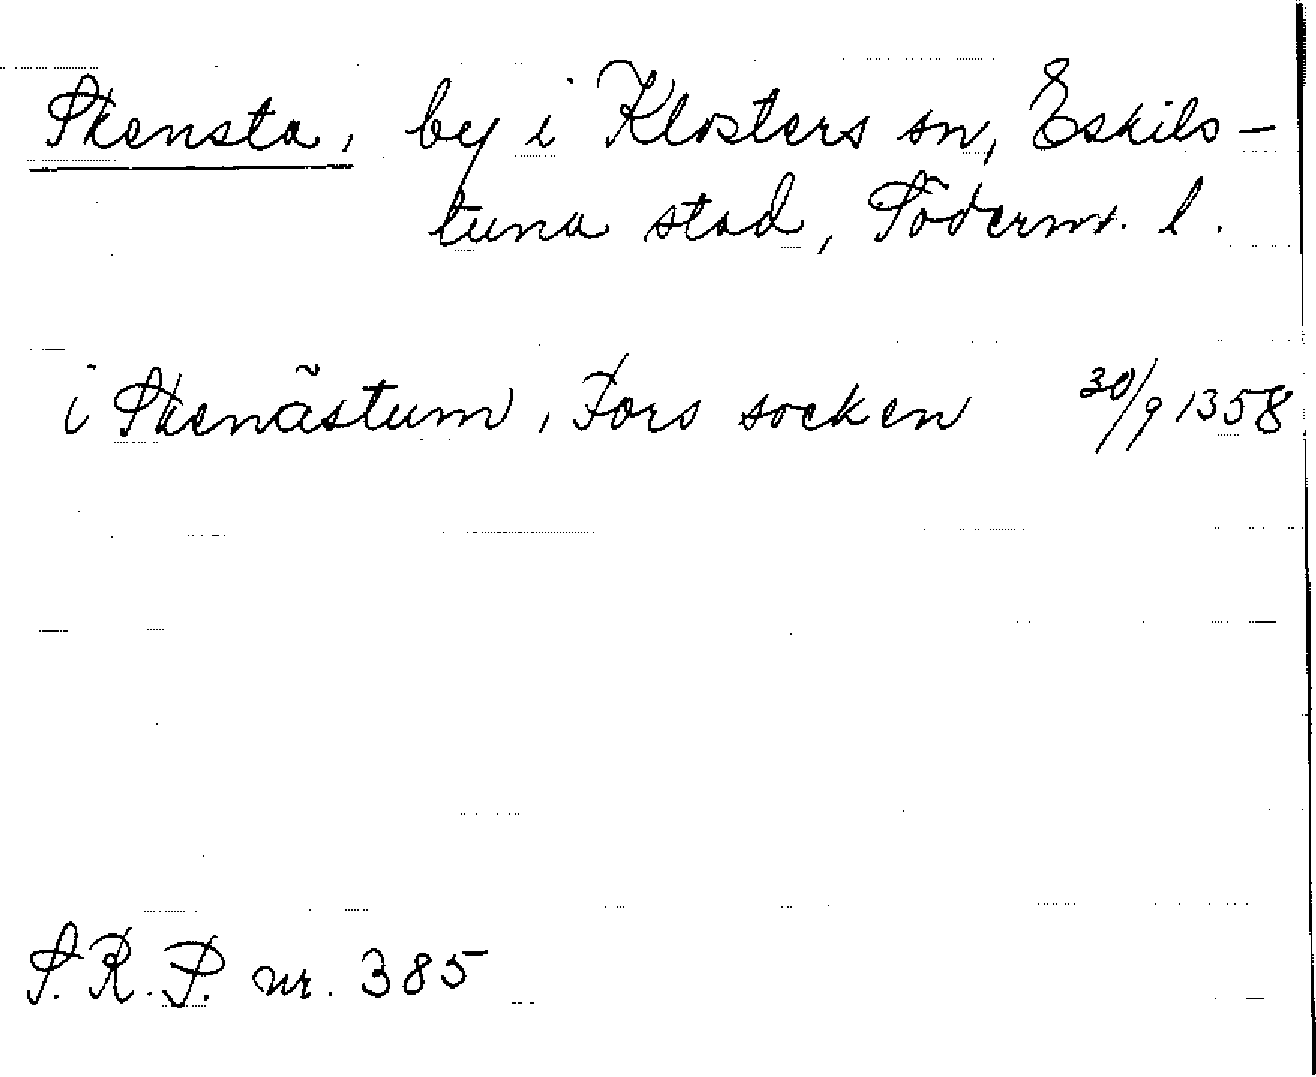 Skensta, by i Klosters sn, Eskils-
tuna stad, Söderm. l.
i Skenästum, Fors socken 30/9 1358
S.R.P. nr. 385